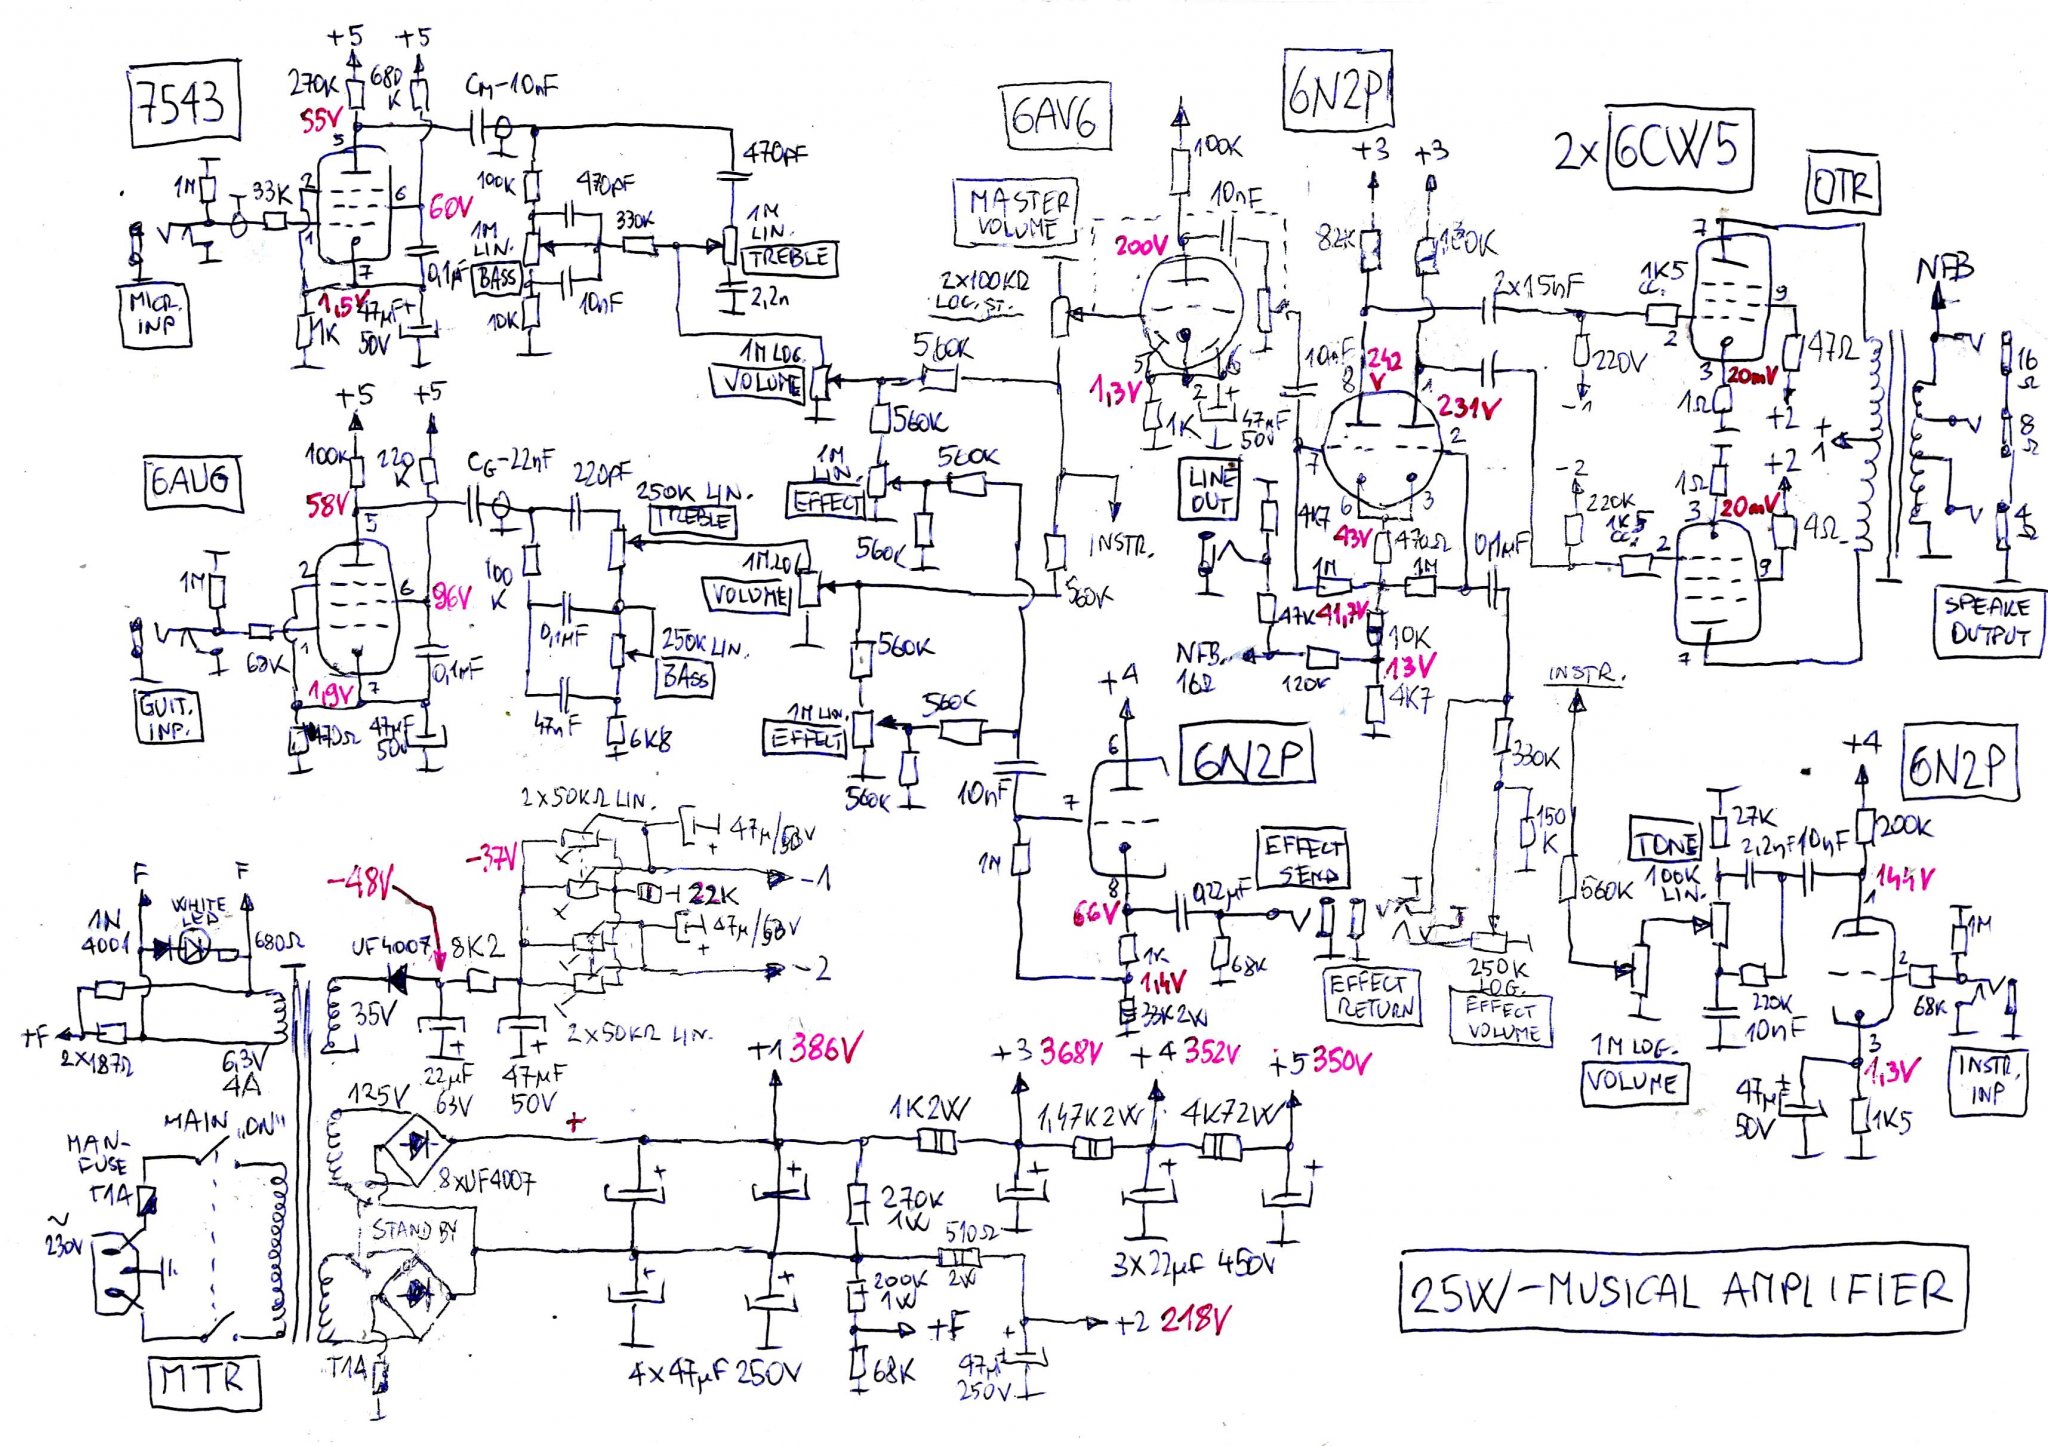 7543
+5
+5
270K
680
K
55V
CM-10nF
5
1M
33K
2
1
6
60V
7
0,1µF
1,5V
1K
47µF
50V
+
MICR.
INP
100K
470pF
1M
LIN.
BASS
330K
10nF
10K
470pF
1M
LIN.
TREBLE
2,2n
1M LOG.
VOLUME
560K
560K
1M
LIN.
EFFECT
560K
560K
6AU6
+5
+5
100K
220
K
58V
CG-22nF
220pF
250K LIN.
TREBLE
5
2
1M
1
6
96V
68K
7
1,9V
470Ω
47µF
50V
0,1µF
GUIT.
INP.
100
K
0,1µF
250K LIN.
BASS
47nF
6K8
1M LOG
VOLUME
560K
1M LIN.
EFFECT
560K
560K
10nF
560K
INSTR.
MASTER
VOLUME
2x100KΩ
LOG. ST.
6AV6
100K
10nF
200V
5
6
2
1,3V
1K
+
47µF
50V
6N2P
+3
+3
82K
100K
10nF
242
V
8
1
231V
7
2
6
3
43V
470Ω
0,1µF
1M
1M
41,7V
10K
13V
4K7
LINE
OUT
4K7
47K
NFB.
16Ω
120K
2x15nF
220V
-1
-2
220K
2x 6CW5
1K5
CC.
7
2
9
3
20mV
1Ω
47Ω
+2
+
1
+2
1Ω
20mV
3
1K5
CC.
2
9
4Ω
7
OTR
NFB
16
Ω
8
Ω
4
Ω
SPEAKE
OUTPUT
+4
6
7
8
6N2P
1M
66V
0,22µF
1K
68K
1,4V
33K2W
EFFECT
SEND
EFFECT
RETURN
330K
150
K
250K
LOG.
EFFECT
VOLUME
INSTR.
560K
1M LOG.
VOLUME
TONE
100K
LIN.
27K
2,2nF
10nF
220K
10nF
+4
200K
144V
1
2
3
6N2P
1M
68K
1,3V
47µF
50V
+
1K5
INSTR.
INP
F
F
1N
4001
WHITE
LED
680Ω
+F
2x187Ω
6,3V
4A
-48V
UF4007
8K2
35V
22µF
63V
+
47µF
50V
+
-37V
2x50KΩ LIN.
47µ/63V
+
-1
22K
47µ/63V
+
-2
2x50KΩ LIN.
MAIN „ON”
MAN-
FUSE
T1A
~
230V
MTR
125V
8xUF4007
STAND BY
T1A
+
+1 386V
+3 368V
+4 352V
+5 350V
1K2W
1,47K2W
4K72W
270K
1W
510Ω
2W
200K
1W
+F
68K
3x22µF 450V
+2 218V
4x47µF 250V
47µ
250V
+
25W-MUSICAL AMPLIFIER